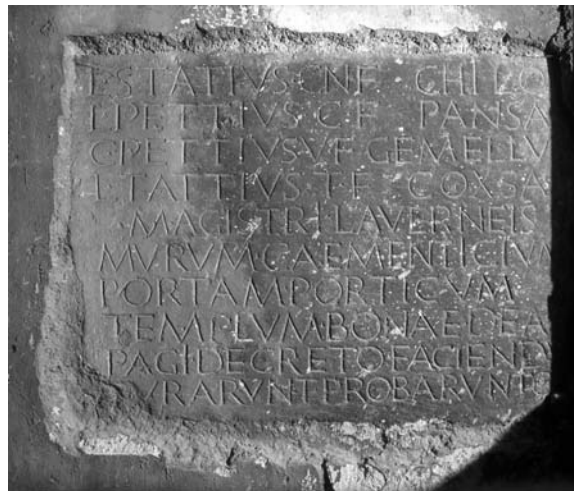 P·STATIVS·CN·F CHILO
L·PETTIVS·C·F PANSA
C·PETTIVS·V·F·GEMELLV
L·TATTIVS·T·F COXSA
MAGISTRI·LAVERNEIS
MVRVM·CAEMENTICIVM
PORTAM·PORTICVM
TEMPLVM·BONAE·DEA
PAGI·DECRETO·FACIEND
VRARVNT·PROBARVNT